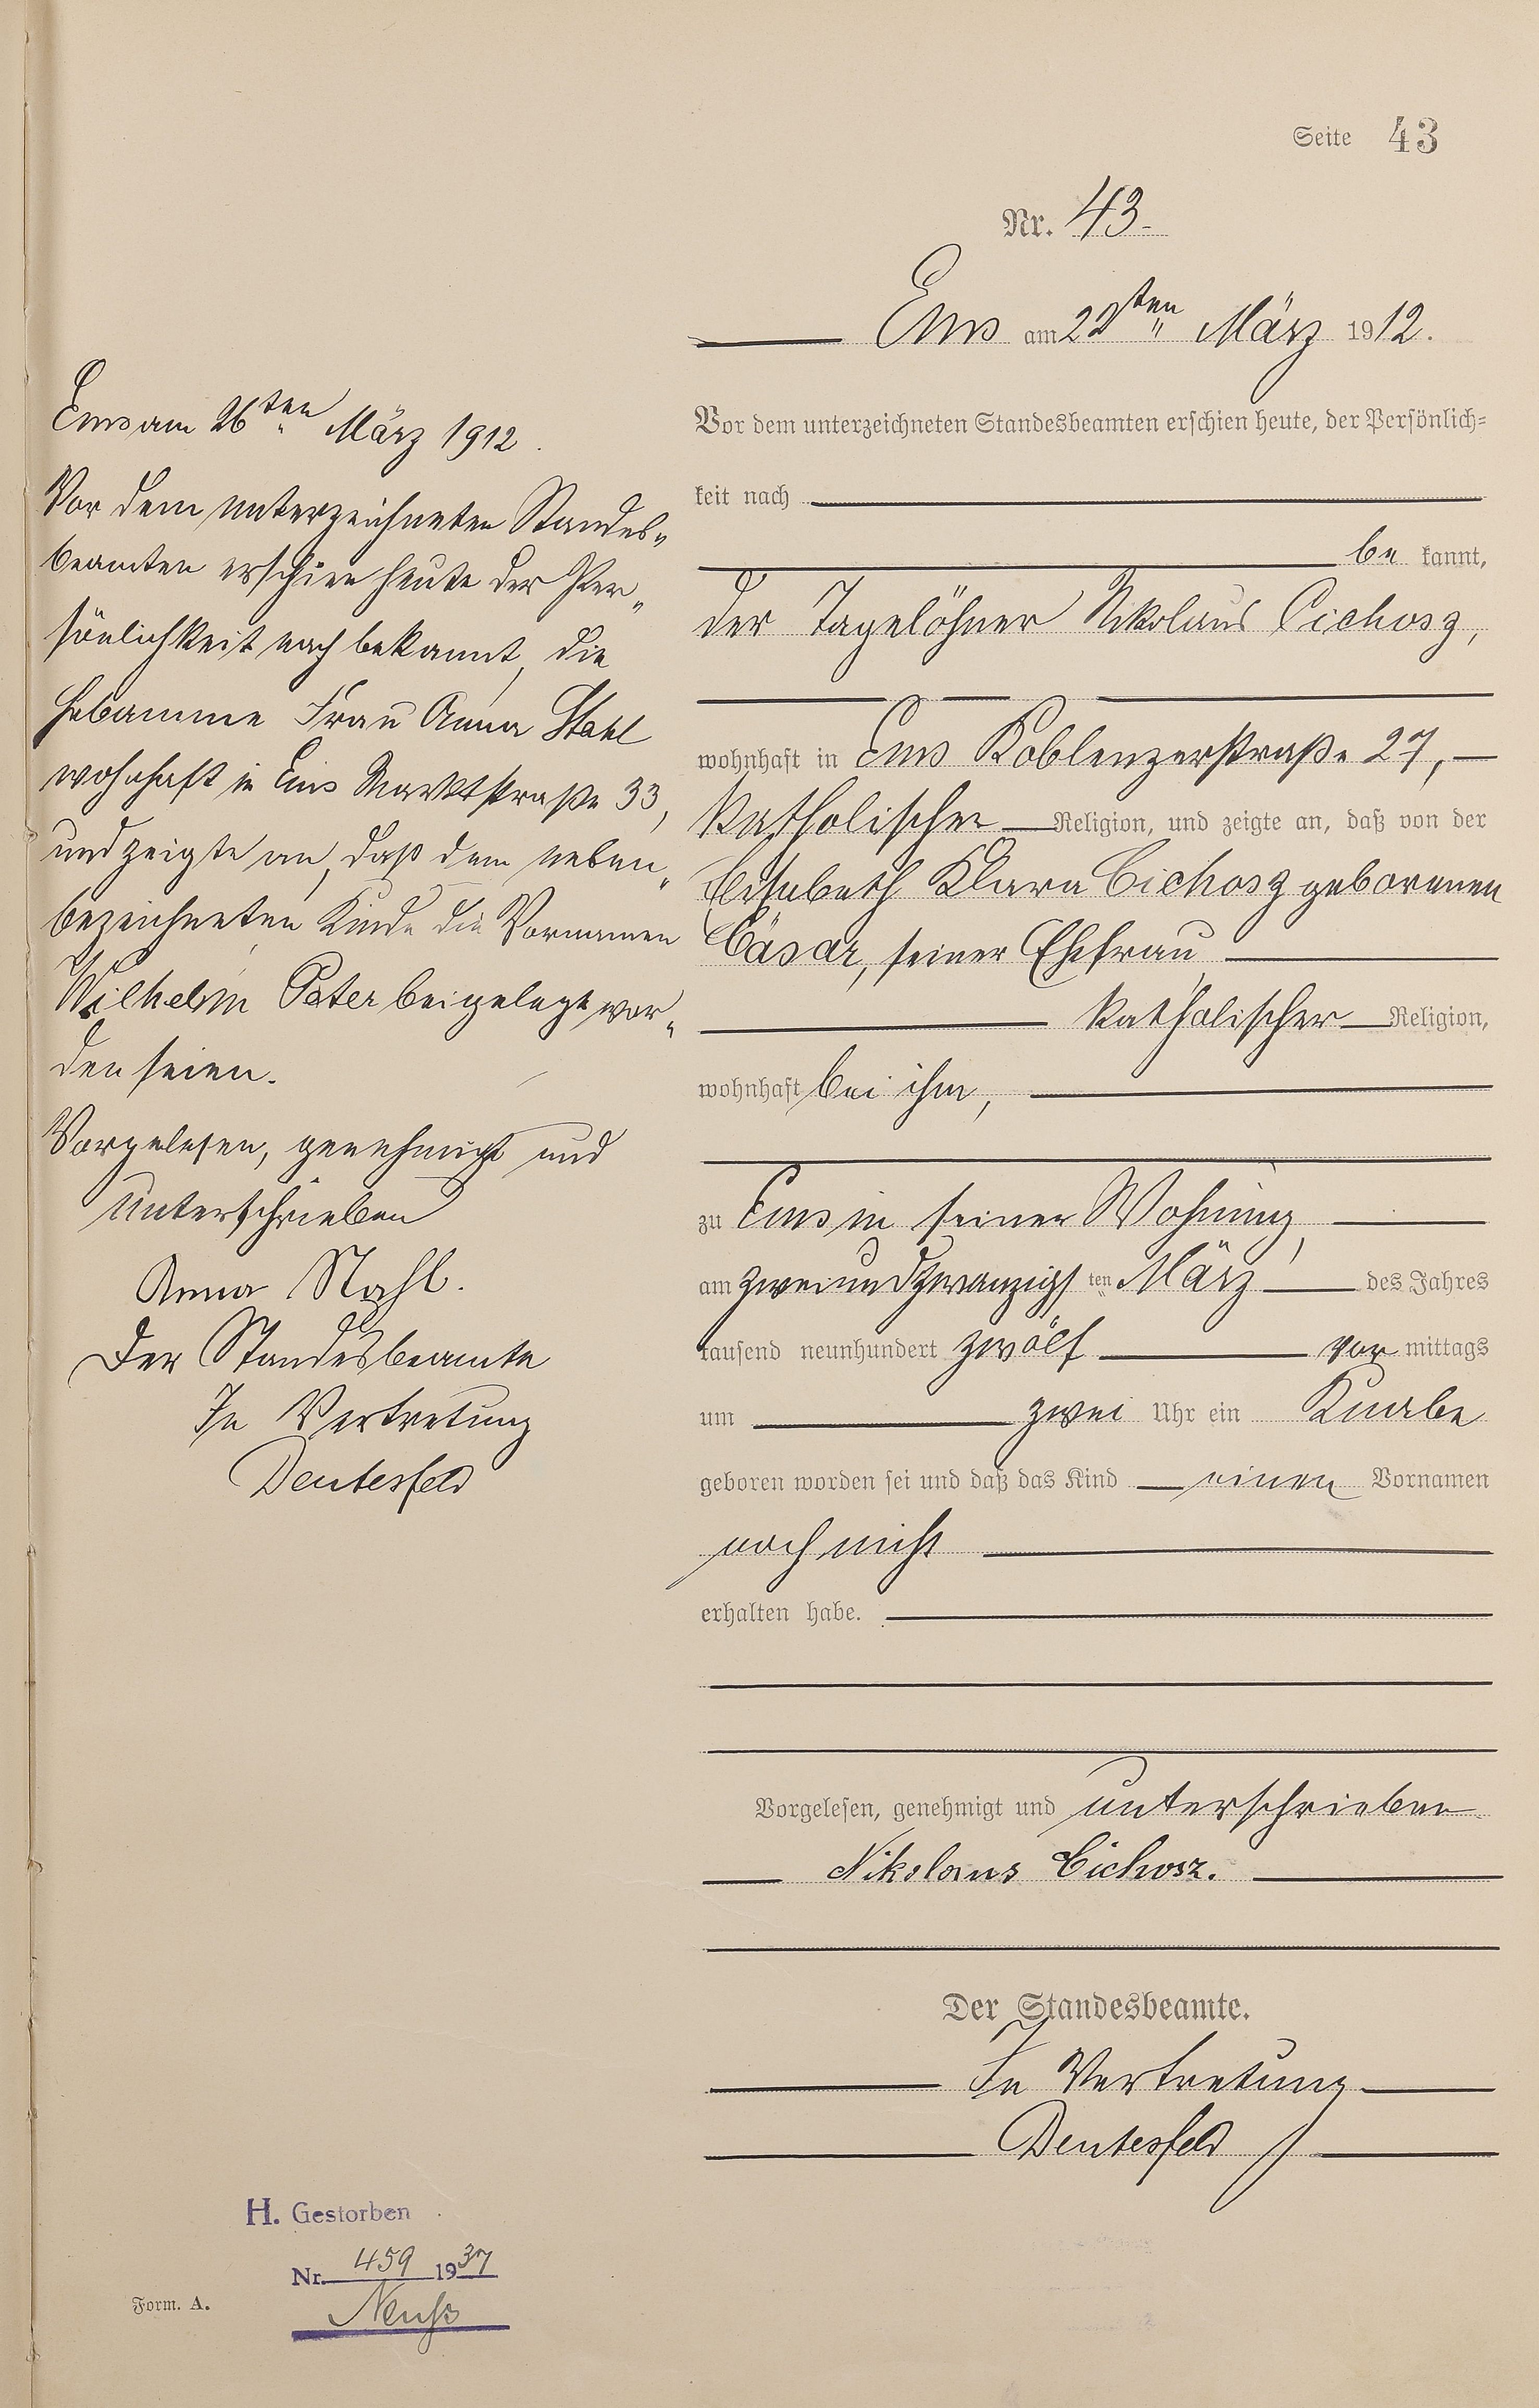 Seite 43
Nr. 43.
Ems am 22ten März 1912.
Vor dem unterzeichneten Standesbeamten erschien heute, der Persönlich-
keit nach
be kannt,
der Tagelöhner Nikolaus Cichosz,
wohnhaft in Ems Koblenzerstraße 27,
katholischer Religion, und zeigte an, daß von der
Elisabeth Klara Cichosz geborenen
Cäsar, seiner Ehefrau
katholischer Religion,
wohnhaft bei ihm,
zu Ems in seiner Wohnung,
am zweiundzwanzigsten März des Jahres
tausend neunhundert zwölf vor mittags
um zwei Uhr ein Knabe
geboren worden sei und daß das Kind einen Vornamen
noch nicht
erhalten habe.
Vorgelesen, genehmigt und unterschrieben
Nikolaus Cichosz.
Der Standesbeamte.
In Vertretung
Deutesfeld
Ems am 26ten März 1912.
Vor dem unterzeichneten Standes-
beamten erschien heute der Per-
sönlichkeit nach bekannt, die
Hebamme Frau Anna Stahl
wohnhaft in Ems Marktstraße 33,
und zeigte an, daß dem neben-
bezeichneten Kinde die Vornamen
Wilhelm Peter beigelegt wor-
den seien.
Vorgelesen, genehmigt und
unterschrieben
Anna Stahl.
Der Standesbeamte
In Vertretung
Deutesfeld
H. Gestorben
Nr. 459 1937
Neuß
Form. A.